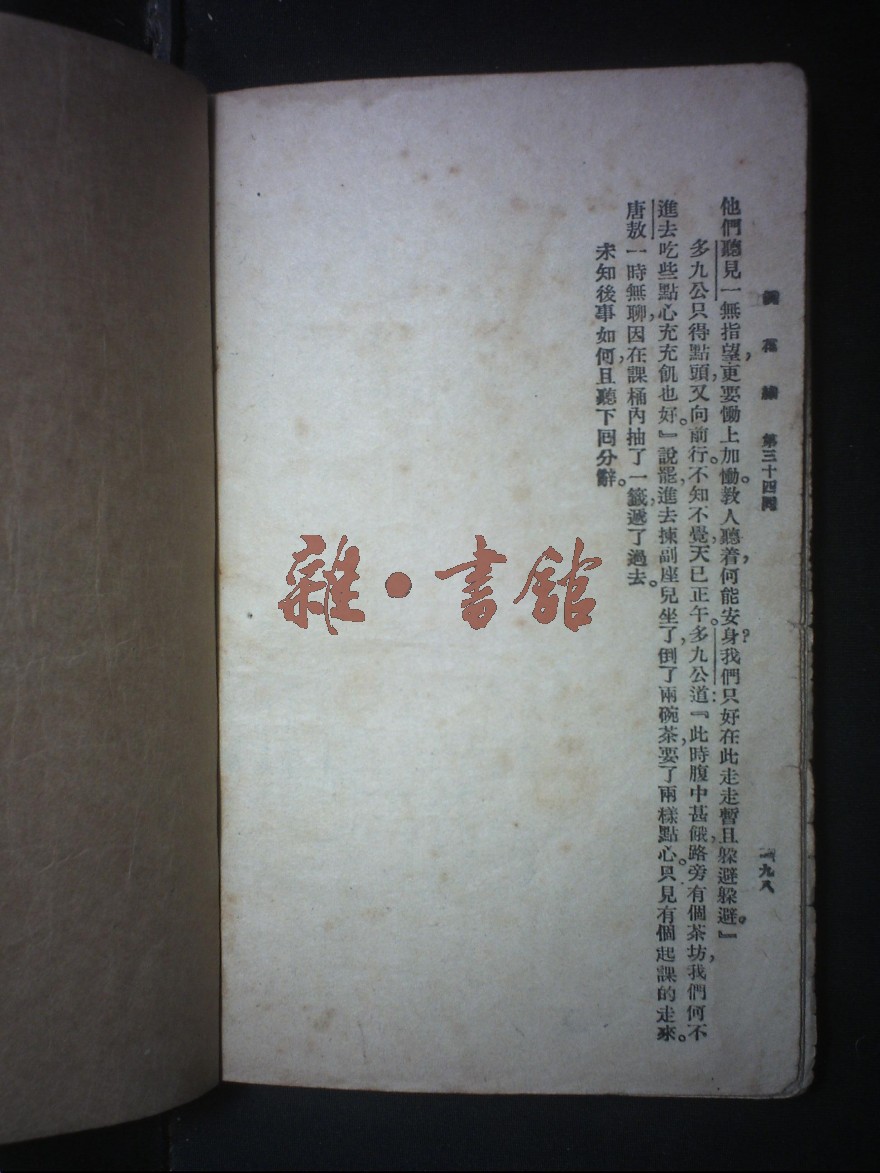 鏡花緣 第三十四回 一九八
他們聽見一無指望，更要慟上加慟。教人聽着，何能安身？我們只好在此走走，暫且躲避躲避。』
多九公只得點頭，又向前行。不知不覺，天已正午。多九公道：『此時腹中甚餓，路旁有個茶坊，我們何不
進去吃些點心，充充飢也好。』說罷，進去揀副座兒坐了，倒了兩碗茶，要了兩樣點心。只見有個起課的走來。
唐敖一時無聊，因在課桶內抽了一籤，遞了過去。
未知後事如何，且聽下回分解。
雜·書館